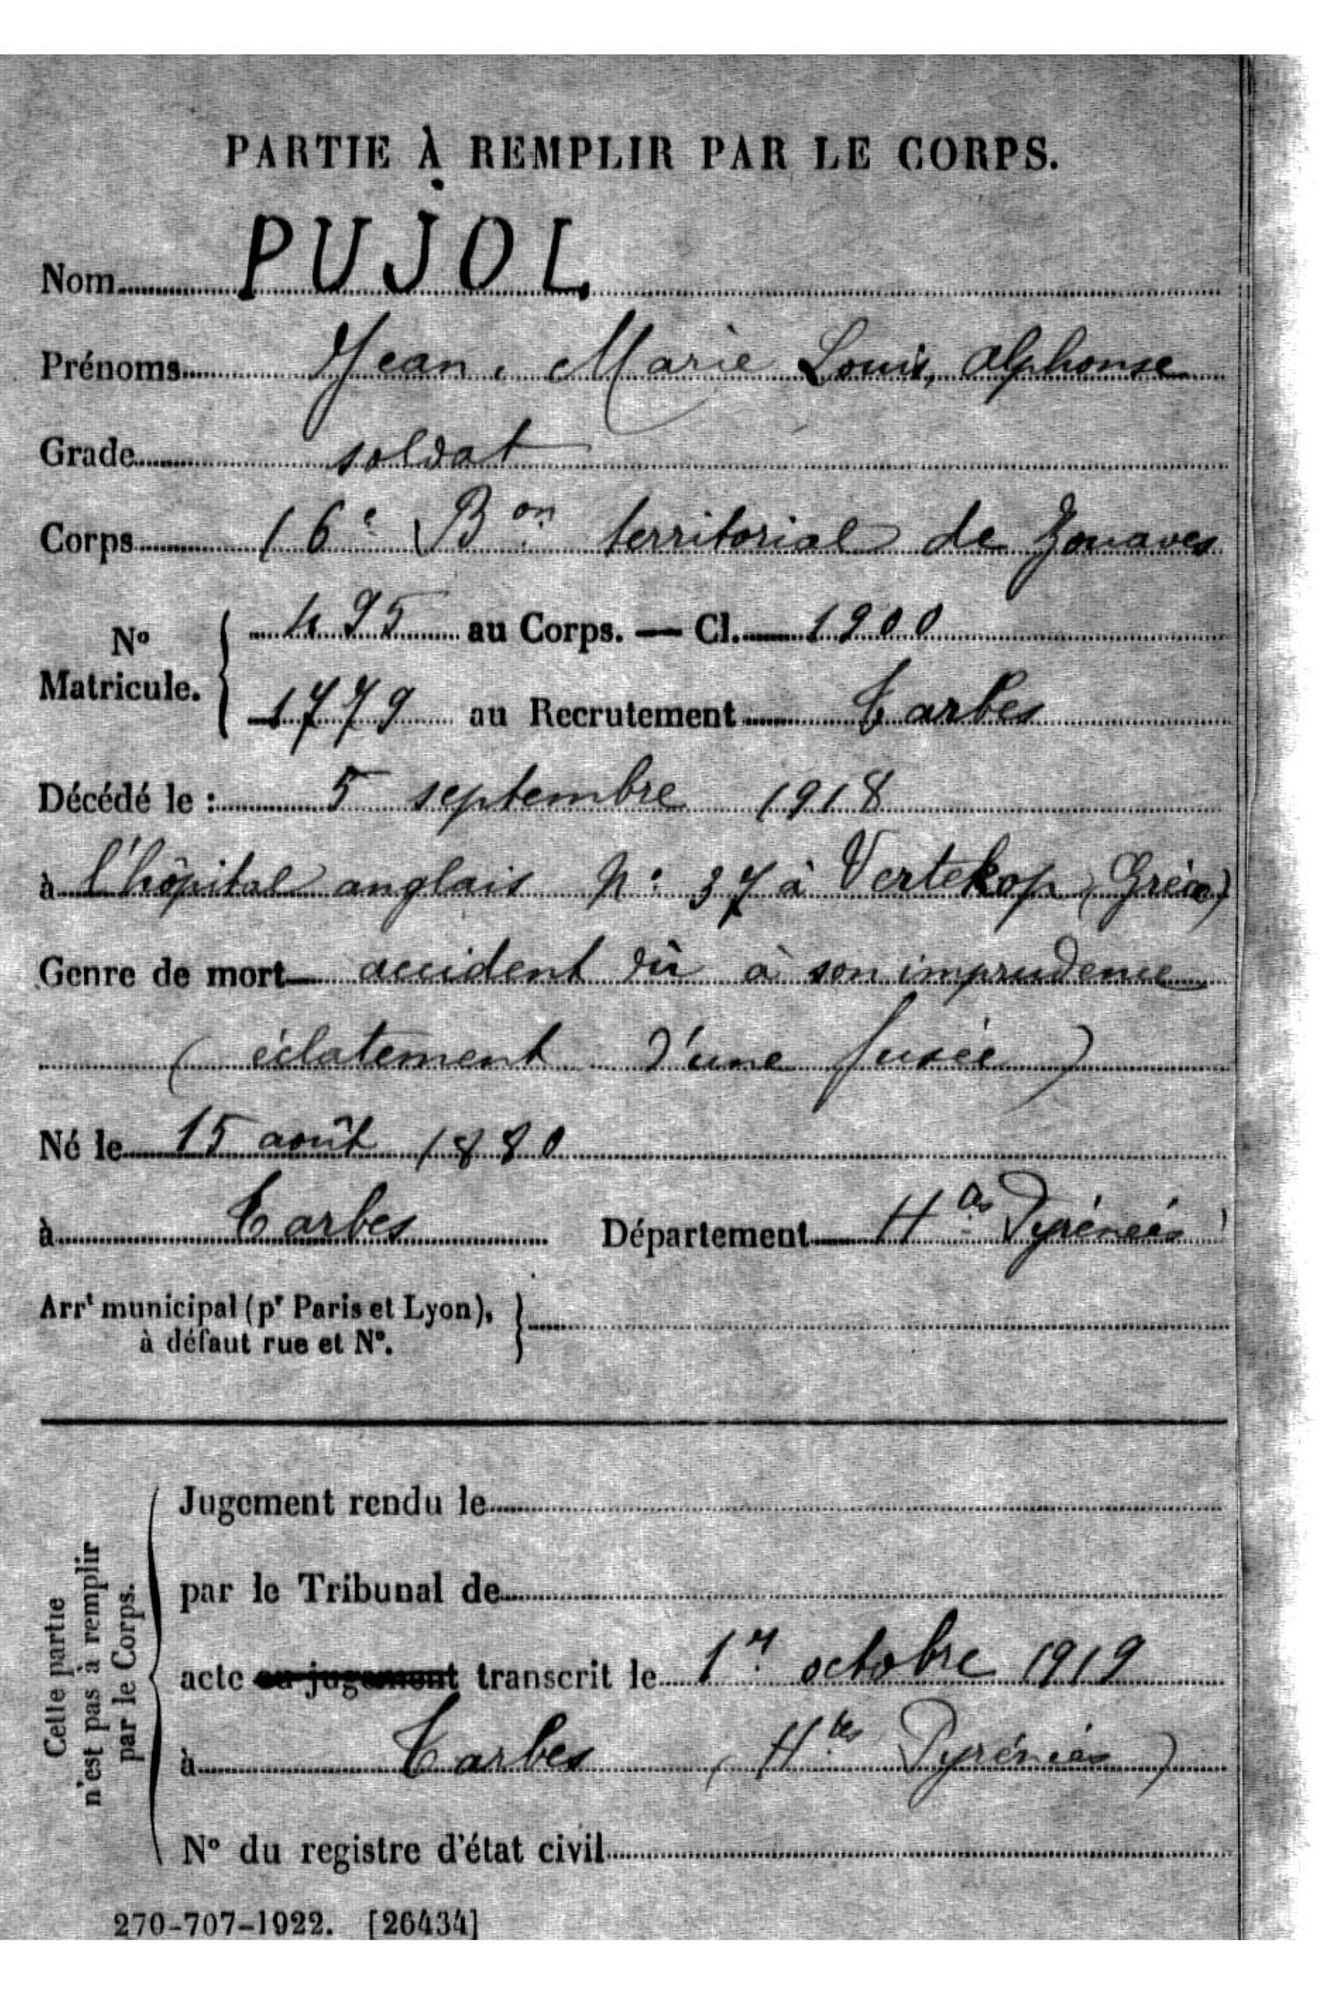 PARTIE À REMPLIR PAR LE CORPS.
Nom PUJOL
Prénoms Jean, Marie Louis, Alphonse
Grade soldat
Corps 16e Bon territorial de Zouaves
No Matricule. { 495 au Corps. — Cl. 1900
1779 au Recrutement Tarbes
Décédé le : 5 septembre 1918
à l'hôpital anglais No 37 à Vertekop (Grèce)
Genre de mort accident dû à son imprudence
( éclatement d'une fusée )
Né le 15 août 1880
à Tarbes Département Htes Pyrénées
Arrt municipal (pr Paris et Lyon), }
à défaut rue et No.
Cette partie
n'est pas à remplir
par le Corps.
Jugement rendu le
par le Tribunal de
acte ou jugement transcrit le 1er octobre 1919
à Tarbes ( Htes Pyrénées )
No du registre d'état civil
270-707-1922. [26434]